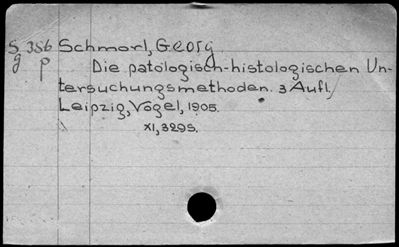 S 386 Schmorl, Georg
g p Die patologisch-histologischen Un-
tersuchungsmethoden. 3 Aufl,
Leipzig, Vogel, 1905.
XI, 329 S.